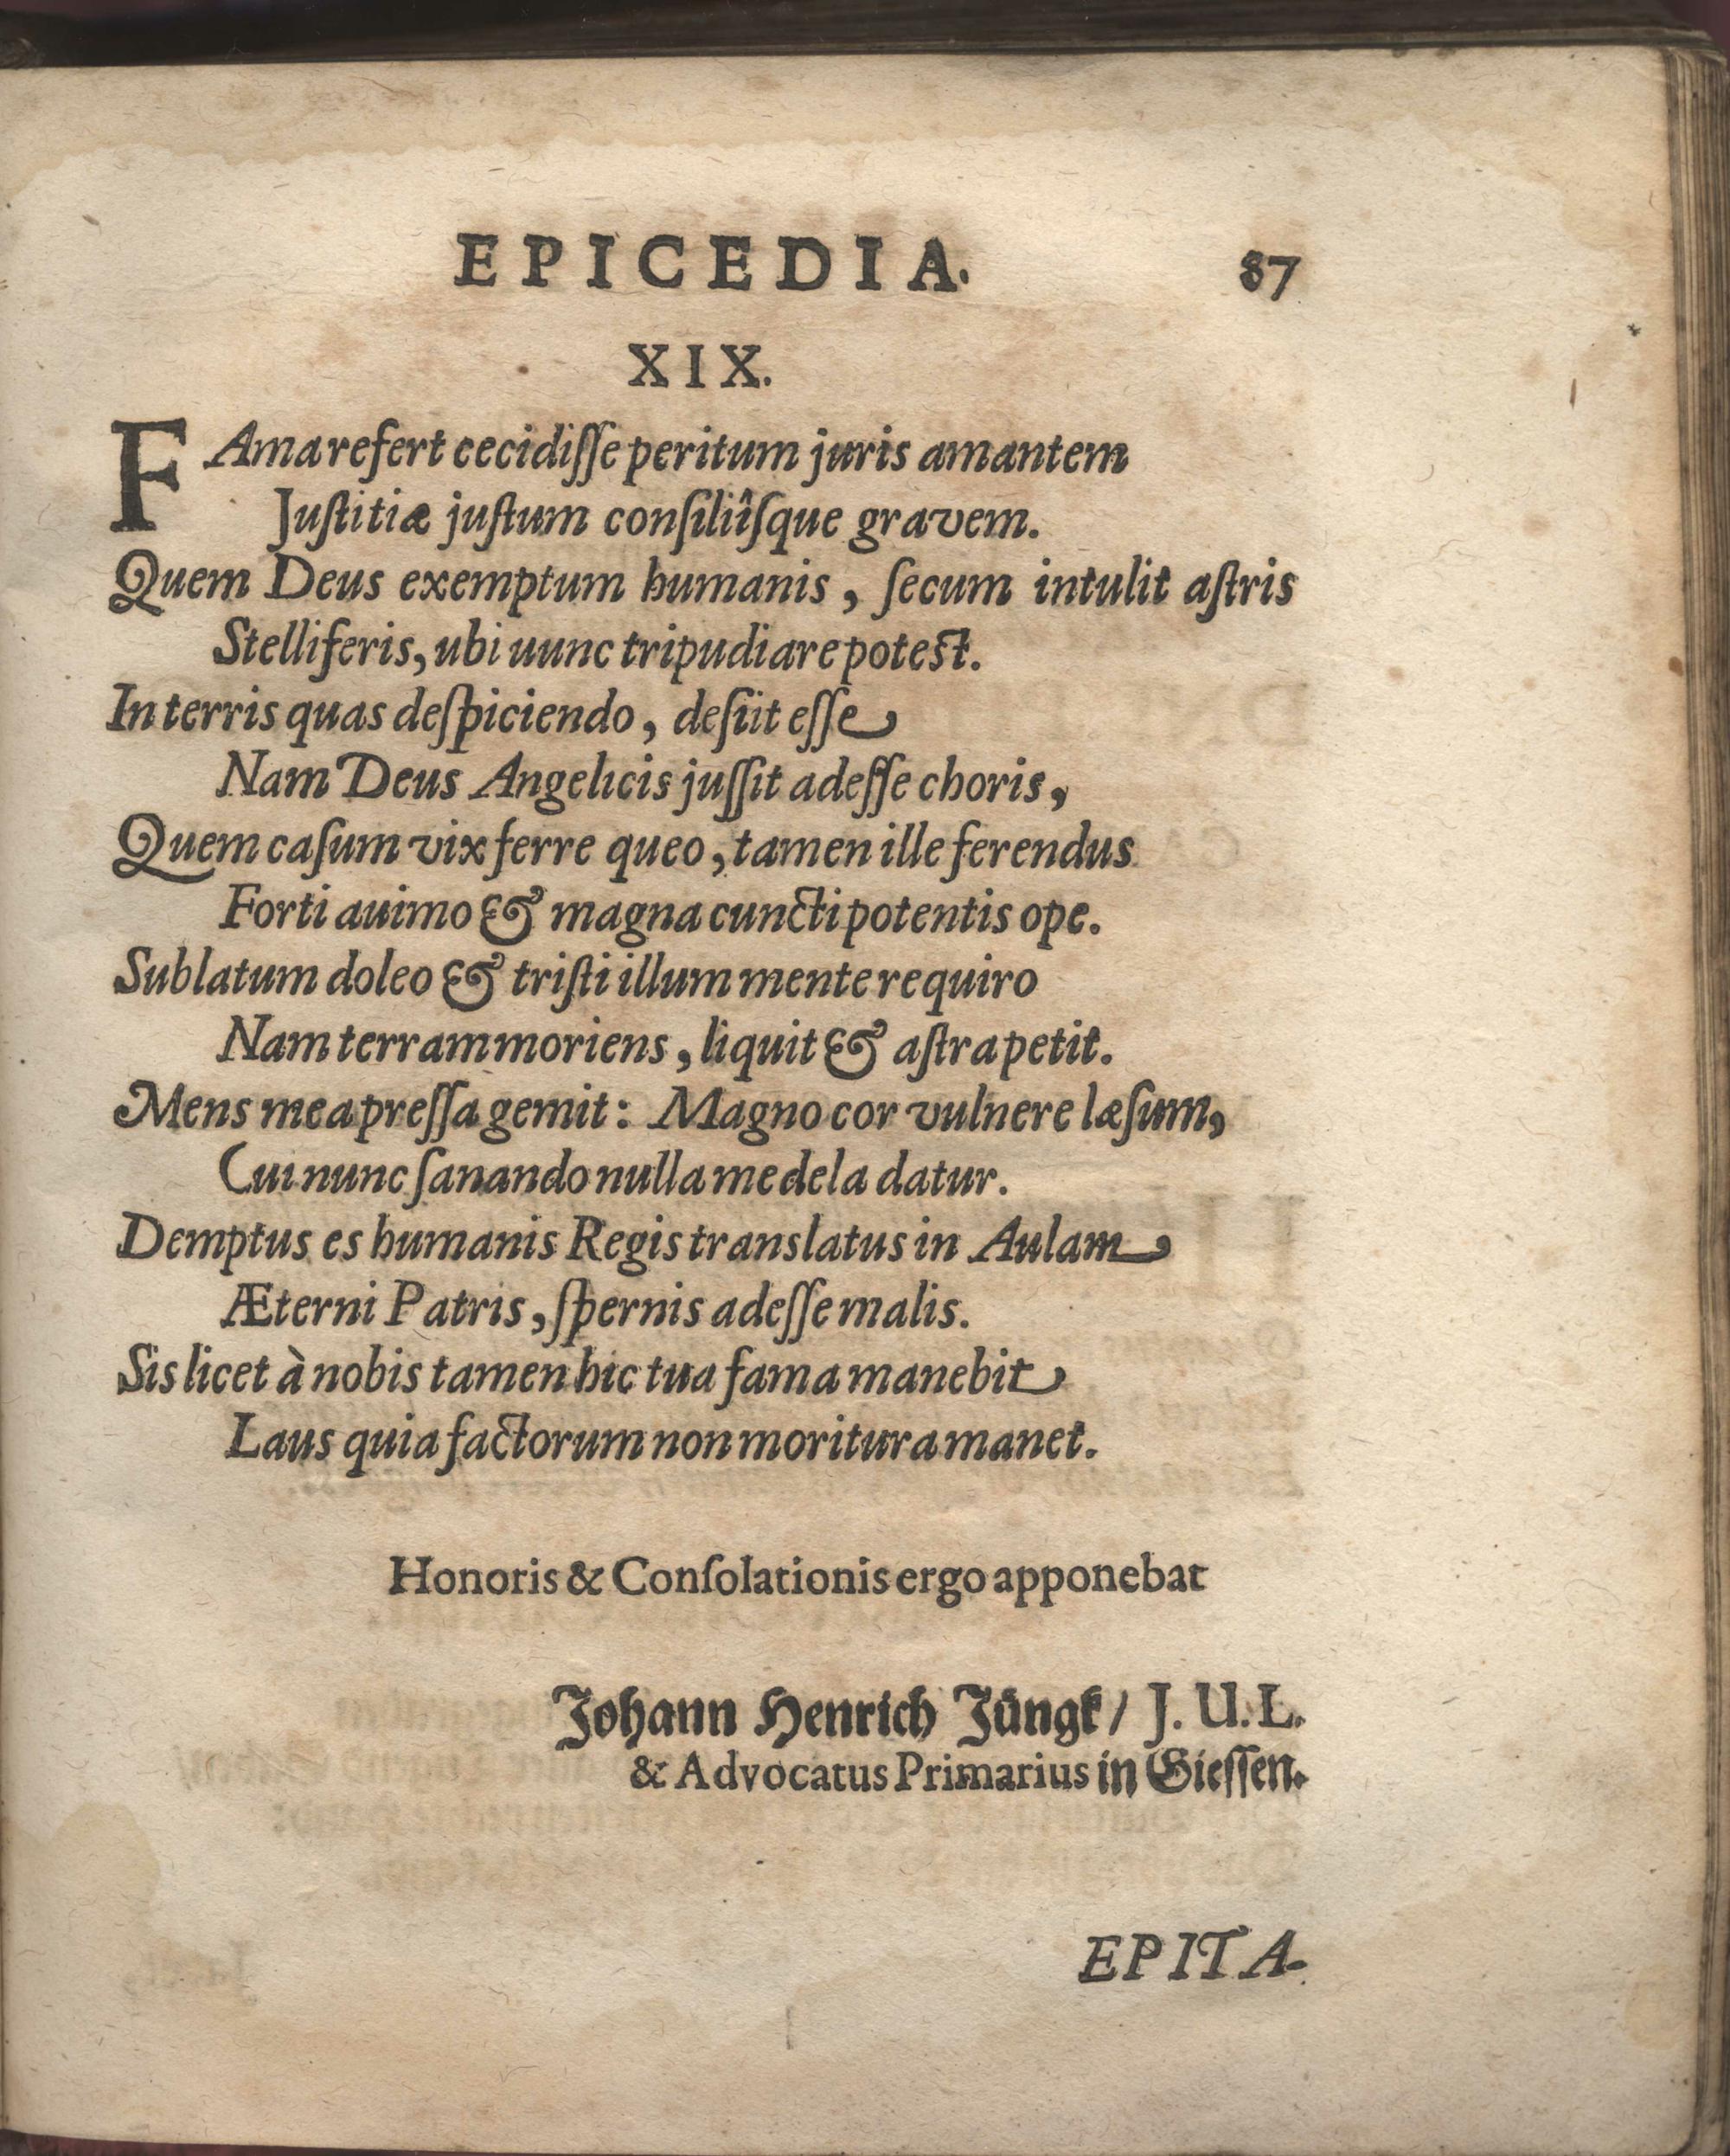 EPICEDIA. 87
XIX.
FAma refert cecidiſſe peritum juris amantem
Juſtitiæ juſtum conſiliîſque gravem.
Quem Deus exemptum humanis, ſecum intulit aſtris
Stelliferis, ubi uunc tripudiare poteſt.
In terris quas deſpiciendo, deſiit eſſe
Nam Deus Angelicis juſſit adeſſe choris,
Quem caſum vix ferre queo, tamen ille ferendus
Forti auimo & magna cunctipotentis ope.
Sublatum doleo & triſti illum mente requiro
Nam terram moriens, liquit & aſtra petit.
Mens mea preſſa gemit: Magno cor vulnere læſum,
Cui nunc ſanando nulla medela datur.
Demptus es humanis Regis translatus in Aulam
Æterni Patris, ſpernis adeſſe malis.
Sis licet à nobis tamen hic tua fama manebit
Laus quia factorum non moritura manet.
Honoris & Conſolationis ergo apponebat
Johann Henrich Jüngk / J. U. L.
& Advocatus Primarius in Gieſſen.
EPITA-